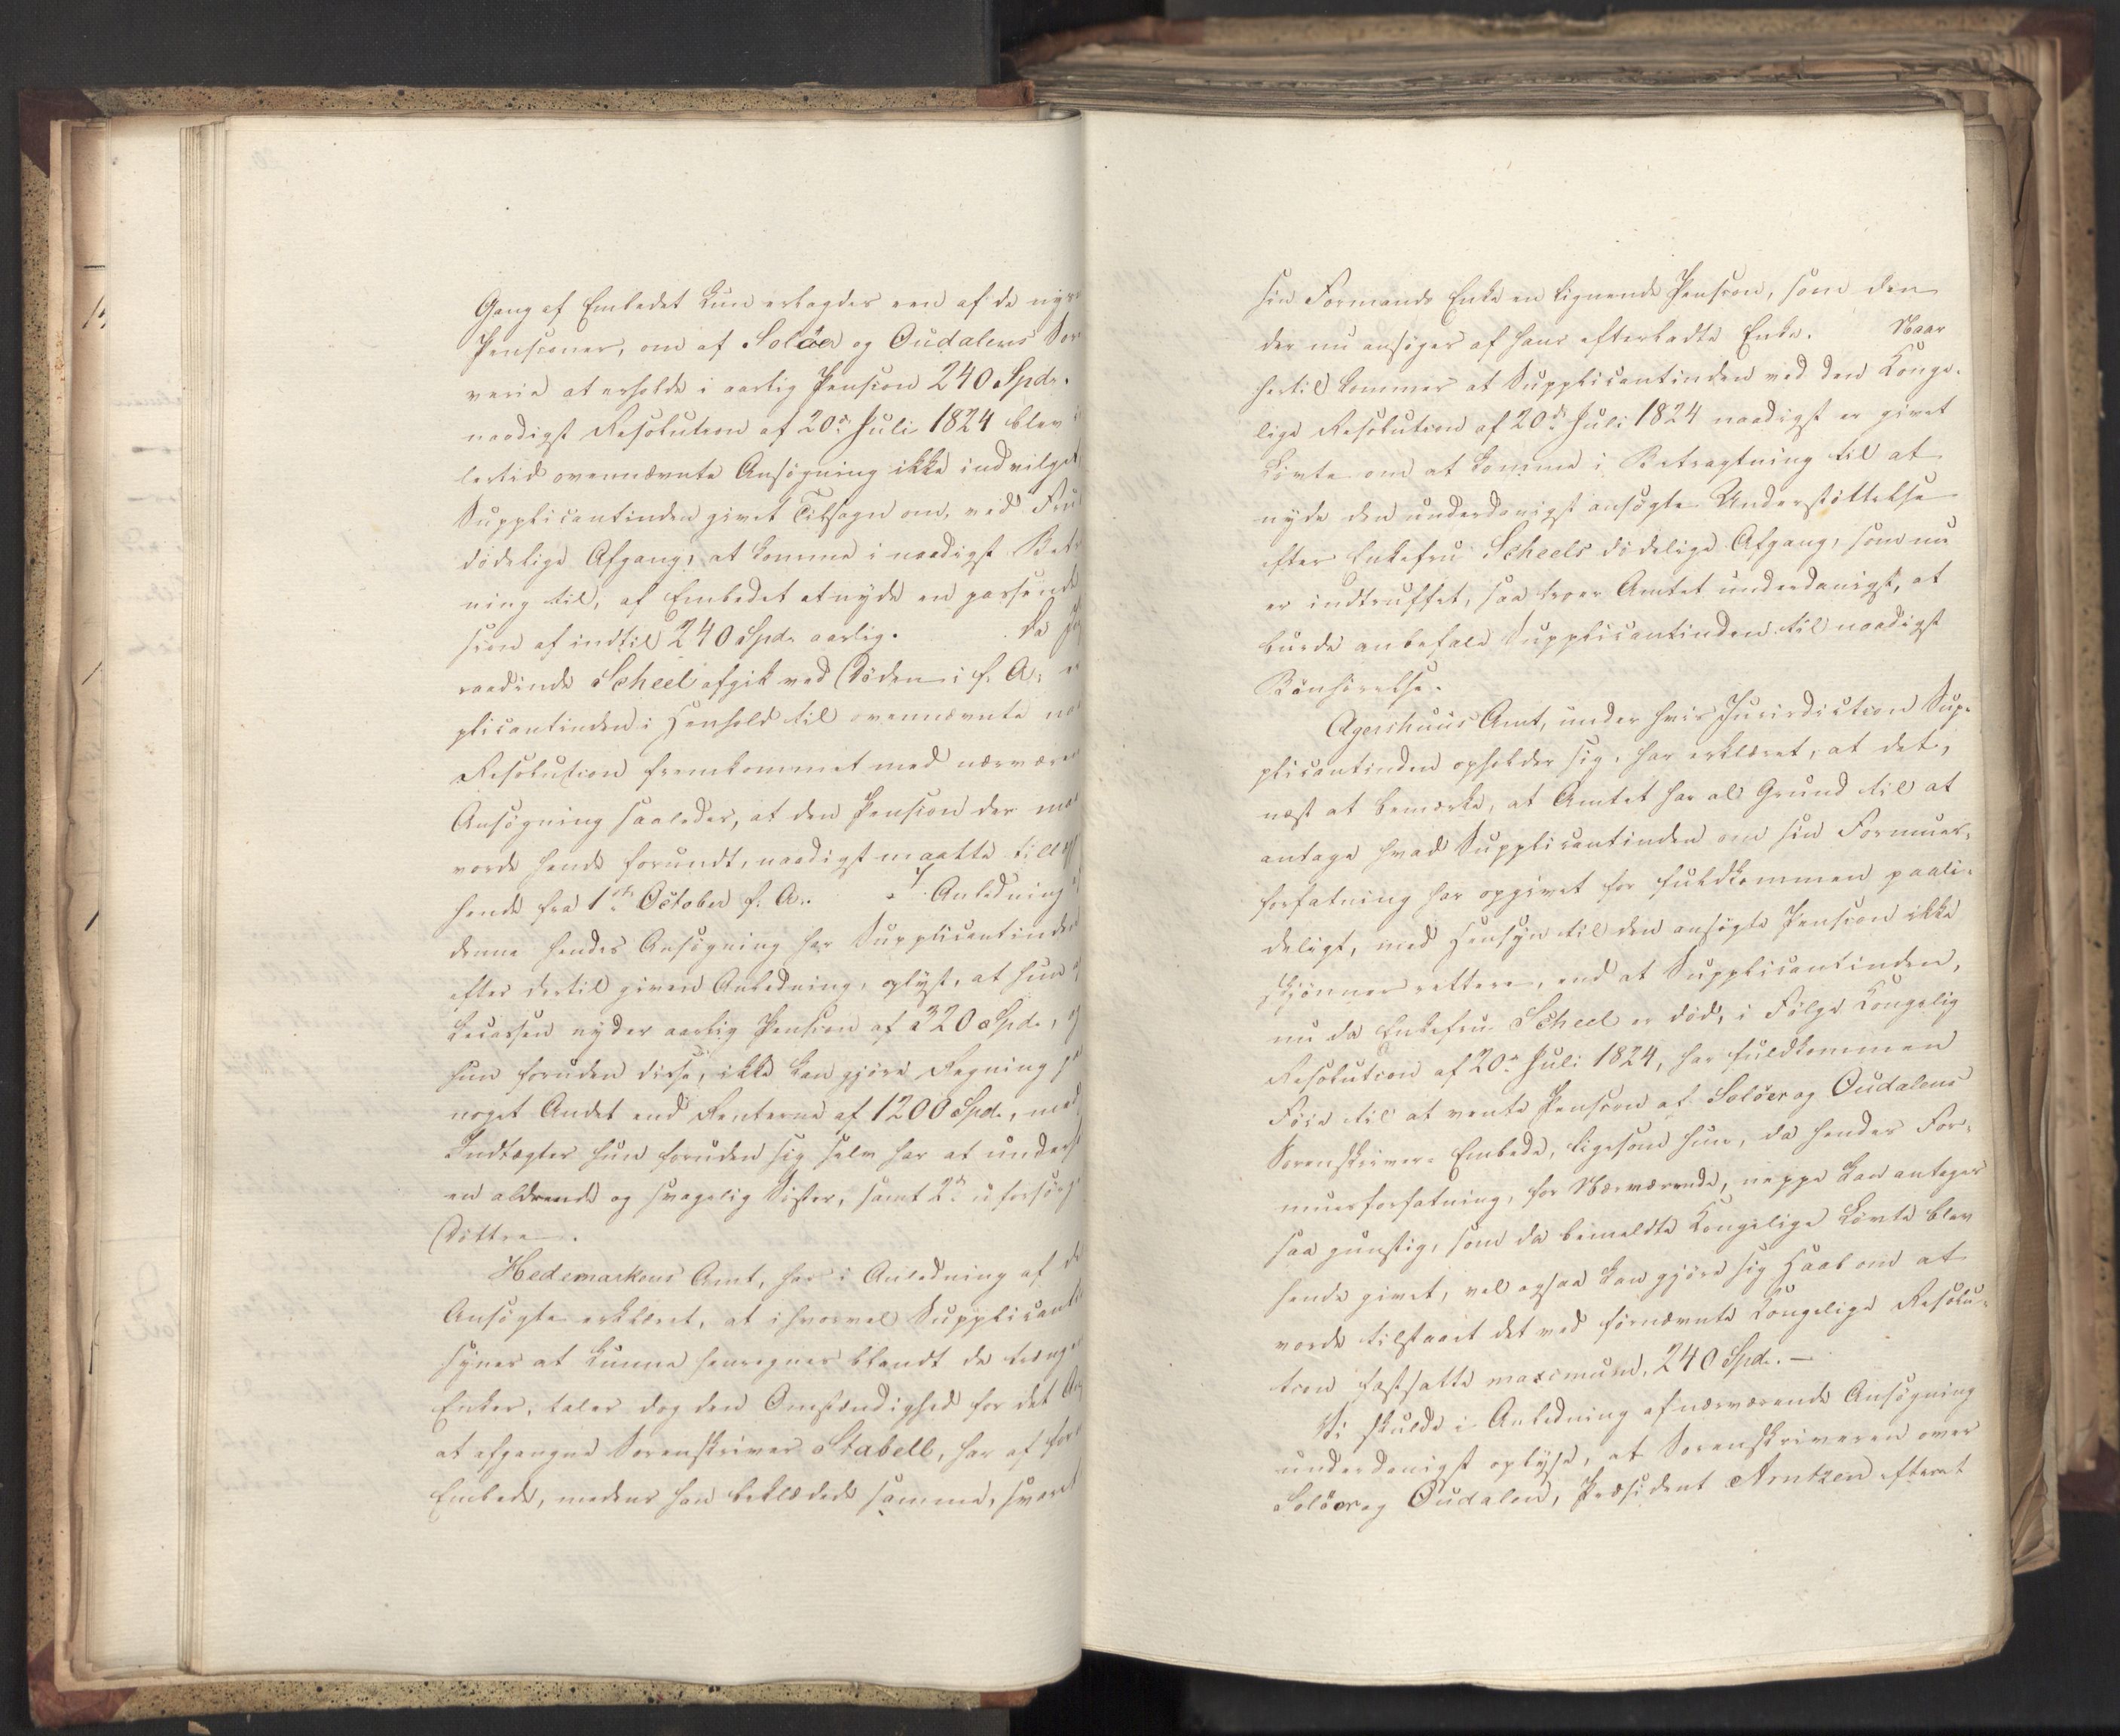 Gang af Embedet kun erlagdes een af de
Pensioner, om af Soløer og Oudalens
verie at erholde i aarlig Pension 240 Spdr.
naadigst Resolution af 20de Juli 1824 blev
lertid ovennævnte Ansøgning ikke indvilget
Supplicantinden givet Tilsagn om, ved
dødelige Afgang, at komme i naadigst
ning til, af Embedet at nyde en passende
sion af indtil 240 Spdr aarlig. Da
raadinde Scheel afgik ved Døden i f. A.
plicantinden i Henhold til ovennævnte
Resolution fremkommet med nærværen
Ansøgning saaledes, at den Pension der
vorde hende forundt, naadigst maatte
hende fra 1ste October f. A. I Anledning
denne hendes Ansøgning har Supplicantinden
efter dertil given Anledning, oplyst, at hun
kassen nyder aarlig Pension af 320 Spdr,
hun foruden disse, ikke kan gjøre Regning
noget Andet end Renterne af 1200 Spdr,
Indtægter hun foruden sig selv har at
en aldrende og svagelig Søster, samt 2de
Døttre.
Hedemarkens Amt, har i Anledning af
Ansøgte erklæret, at ihvorvel
synes at kunne henregnes blandt de
Enker, taler dog den Omstændighed for det
at afgangne Sorenskriver Stabell, har af
Embede, medens han beklædede samme, svaret
sin Formands Enke en lignende Pension, som den
der nu ansøges af hans efterladte Enke. Naar
hertil kommer at Supplicantinden ved den Konge-
lige Resolution af 20de Juli 1824 naadigst er givet
Løvte om at komme i Betragtning til at
nyde den underdanigst ansøgte Understøttelse
efter Enkefru Scheels dødelige Afgang, som nu
er indtruffet, saa troer Amtet underdanigst, at
burde anbefale Supplicantinden til naadigst
Bønhørelse.
Agershuus Amt, under hvis Jurisdiction Sup-
plicantinden opholder sig, har erklæret, at det,
næst at bemærke, at Amtet har al Grund til at
antage hvad Supplicantinden om sin Formues-
forfatning har opgivet for fuldkommen paali-
deligt, med Hensyn til den ansøgte Pension ikke
skjønner rettere, end at Supplicantinden,
nu da Enkefru Scheel er død, i Følge Kongelig
Resolution af 20de Juli 1824, har fuldkommen
Føie til at vente Pension af Soløer og Oudalens
Sorenskriver-Embede, ligesom hun, da hendes For-
muesforfatning, for Nærværende, neppe kan antages
saa gunstig, som da bemeldte Kongelige Løvte blev
hende givet, vel ogsaa kan gjøre sig Haab om at
vorde tilstaaet det ved førnævnte Kongelige Resolu-
tion fastsatte maximum, 240 Spdr. —
Vi skulde i Anledning af nærværende Ansøgning
underdanigst oplyse, at Sorenskriveren over
Soløer og Oudalen, Præsident Arntzen efteret